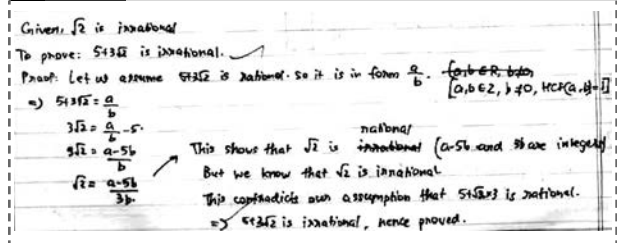 Given, √2 is irrational
To prove: 5+3√2 is irrational.
Proof: Let us assume 5+3√2 is rational. So it is in form a/b. {a,b∈R, b≠0}
[a,b∈Z, b≠0, HCF(a,b)=1]
=) 5+3√2 = a/b
3√2 = a/b - 5.
3√2 = a-5b/b
√2 = a-5b/3b.
This shows that √2 is irrational rational (a-5b and 3b are integers)
But we know that √2 is irrational
This contradicts our assumption that 5+√2=3 is rational.
=) 5+3√2 is irrational, hence proved.